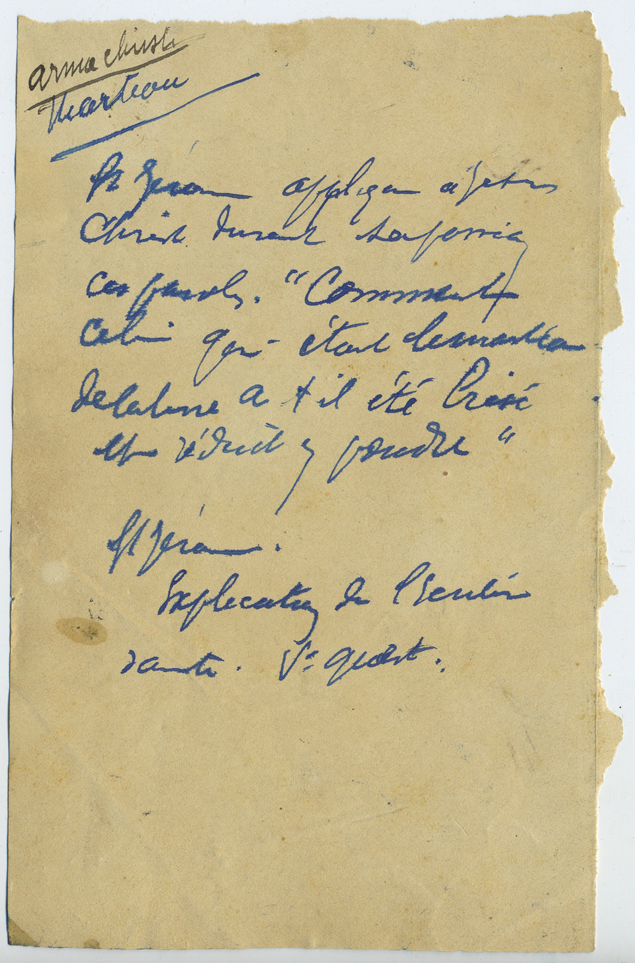 arma christi
Marteau
St Jérome applique à Jesus
Christ durant sa passion
ces paroles. "Comment
celui qui était le marteau
de la terre a t il été brisé
et réduit en poudre"
St Jérome.
Explication de l'Ecriture
sainte.